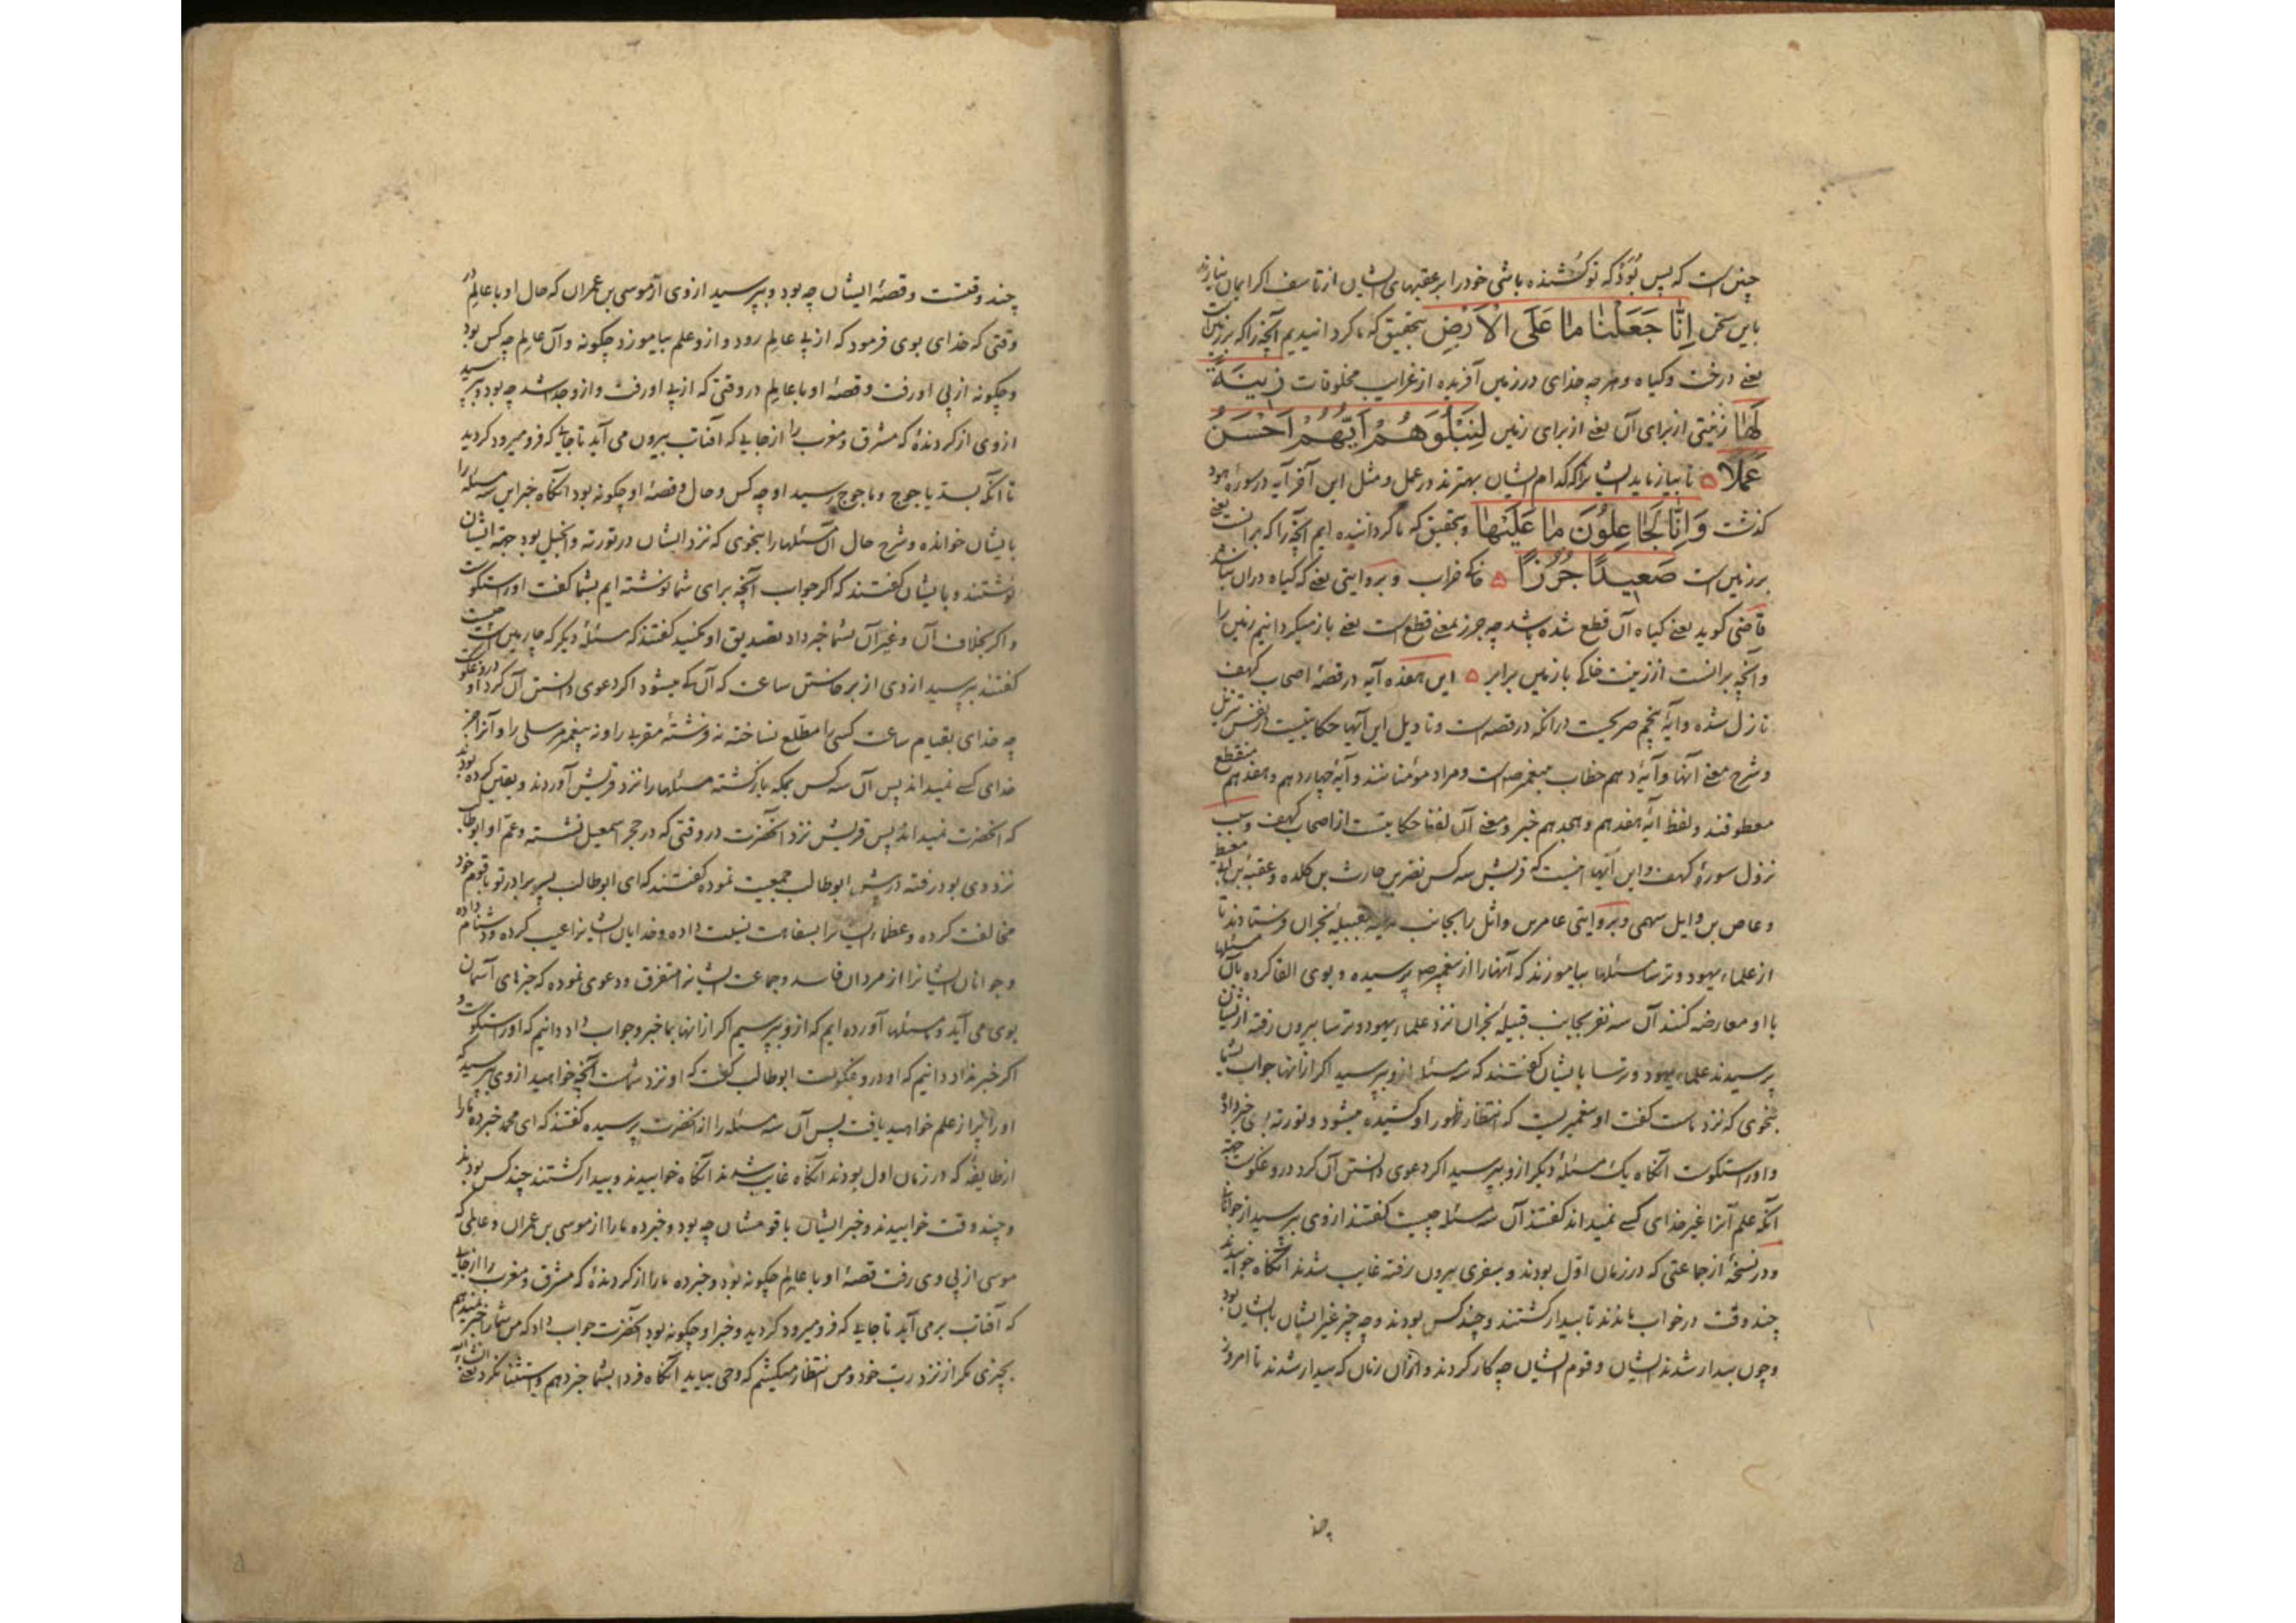 چنین است که پس بُوَد که تو کُشنده باشی خود را بر عقبهای ایشان از تاسف اگر ایمان نیارند
باین سخن اِنَّا جَعَلْنَا مَا عَلَى الْاَرْضِ بتحقیق که ما گردانیدیم آنچه را که بر زمین است
یعنی درخت و کیاه و هر چه خدای در زمین آفریده از غرایب مخلوقات زِینَةً
لَهَا زینتی از برای آن یعنی از برای زمین لِنَبْلُوَهُمْ اَیُّهُمْ اَحْسَنُ
عَمَلًا تا بیازماید ایشانرا که کدام ایشان بهترند در عمل و مثل این آخر آیه در سوره هود
کذشت وَاِنَّا لَجَاعِلُونَ مَا عَلَيْهَا و بتحقیق که ما گرداننده ایم آنچه را که بر آنست یعنی
بر زمین است صَعِیدًا جُرُزًا خاکی خراب و بروایتی یعنی که کیاه در آن نباشد
قاضی کوید یعنی کیاه آن قطع شده باشد چه جرز بمعنی قطع است یعنی باز میکردانیم زمین را
و آنچه بر انست از زینت خاکی با زمین برابر این هفده آیه در قصهٔ اصحاب کهف
نازل شده و آیهٔ پنجم صریحست در انکه در قصه است و تاویل این آیها حکایتیست از نفس تنزیل
و شرح معنی آنها و آیهٔ دهم خطاب بپیغمبر صه است و مراد مؤمنانند و آیهٔ چهاردهم و هفدهم منقطع
معطوفند و لفظ آیهٔ هفدهم و هجدهم خبر و معنی آن لفظا حکایتست از اصحاب کهف و سبب
نزول سورهٔ کهف و این آیها اینست که قریش سه کس نضر بن حارث بن کلده و عقبة بن ابی معیط
و عاص بن وایل سهمی و بروایتی عامر بن واثل را بجانب قبیلهٔ نجران فرستادند تا
از علماء یهود و ترسا مسئلها بیاموزند که آنها را از پیغمبر صه پرسیده و بوی القا کرده بآن مسئلها
با او معارضه کنند آن سه نفر بجانب قبیلهٔ نجران نزد علماء یهود و ترسا بیرون رفته از ایشان
پرسیدند علماء یهود و ترسا بایشان کفتند که سه مسئله ازو بپرسید اکر از انها جواب بشما
بنحوی که نزد ماست کفت او پیغمبریست که انتظار ظهور او کشیده میشود و تورته باو خبر داده
و او راستکوست آنکاه یک مسئلهٔ دیکر ازو بپرسید اکر دعوی دانستن آن کرد دروغکوست جهة
آنکه علم آنرا غیر خدای کسی نمیداند کفتند آن سه مسئله چیست کفتند از وی بپرسید از جوانانی
و در نسخهٔ از جماعتی که در زمان اول بودند و بسفری بیرون رفته غایب شدند آنکاه خوابیدند
چند وقت در خواب ماندند تا بیدار کشتند و چند کس بودند و چه چیز غیر ایشان با ایشان بود
و چون بیدار شدند ایشان و قوم ایشان چه کار کردند و از آن زمان که بیدار شدند تا امروز
چند
چند وقتست و قصهٔ ایشان چه بود و بپرسید از وی از موسی بن عمران که حال او با عالم در
وقتی که خدای بوی فرمود که از پی عالم رود و ازو علم بیاموزد چکونه و آن عالم چه کس بود
و چکونه از پی او رفت و قصهٔ او با عالم در وقتی که از پی او رفت و ازو جدا شد چه بود و بپرسید
از وی از کردندهٔ که مشرق و مغرب را از جایی که آفتاب بیرون می آید تا جایی که فرو میرود کردید
تا آنکه بسد یاجوج و ماجوج رسید او چه کس و حال و قصهٔ او چکونه بود آنکاه خبر این سه مسئله را
بایشان خوانده و شرح حال آن مسئلها را بنحوی که نزد ایشان در تورته و انجیل بود جهة ایشان
نوشتند و بایشان کفتند که اکر جواب آنچه برای شما نوشته ایم بشما کفت او راستکوست
و اکر بخلاف آن و غیر آن بشما خبر داد تصدیق او مکنید کفتند که مسئلهٔ دیکر که چارمین است چیست
کفتند بپرسید از وی از برخاستن ساعت که آن کی میشود اکر دعوی دانستن آن کرد او دروغکوست
چه خدای بقیام ساعت کسی را مطّلع نساخته نه فرشتهٔ مقربی را و نه پیغمبر مرسلی را و آنرا جز
خدای کسی نمیداند پس آن سه کس بمکه بازکشته مسئلها را نزد قریش آوردند و یقین کرده بودند
که انحضرت نمیداند پس قریش نزد آنحضرت در وقتی که در حجر اسمعیل نشسته و عمّ او ابوطالب
نزد وی بود رفته پیش ابوطالب جمعیت نموده کفتند که ای ابوطالب پسر برادر تو با قوم خود
مخالفت کرده و عظماء ایشانرا بسفاهت نسبت داده و خدایان ایشانرا عیب کرده و دشنام داده
و جوانان ایشانرا از مردان فاسد و جماعت ایشانرا متفرق و دعوی نموده که خبرهای آسمان
بوی می آید و مسئلها آورده ایم که ازو بپرسیم اکر از انها بما خبر و جواب داد دانیم که او راستکوست و
اکر خبر نداد دانیم که او دروغکوست ابوطالب کفت که او نزد شماست آنچه خواهید از وی بپرسید که
او را پر از علم خواهید یافت پس آن سه مسئله را از آنحضرت پرسیده کفتند که ای محمد خبر ده ما را
از طایفهٔ که در زمان اول بودند آنکاه غایب شدند آنکاه خوابیدند و بیدار کشتند چند کس بودند
و چند وقت خوابیدند و خبر ایشان با قومشان چه بود و خبر ده ما را از موسی بن عمران و عالمی که
موسی از پی وی رفت قصهٔ او با عالم چکونه بود و خبر ده ما را از کردندهٔ که مشرق و مغرب را از جایی
که آفتاب بر می آید تا جایی که فرو میرود کردید و خبر او چکونه بود آنحضرت جواب داد که من شما را خبر نمیدهم
بچیزی مکر از نزد ربّ خود و من انتظار میکشم که وحی بیاید آنکاه فردا بشما خبر دهم و استثنا نکرد یعنی انشاءالله